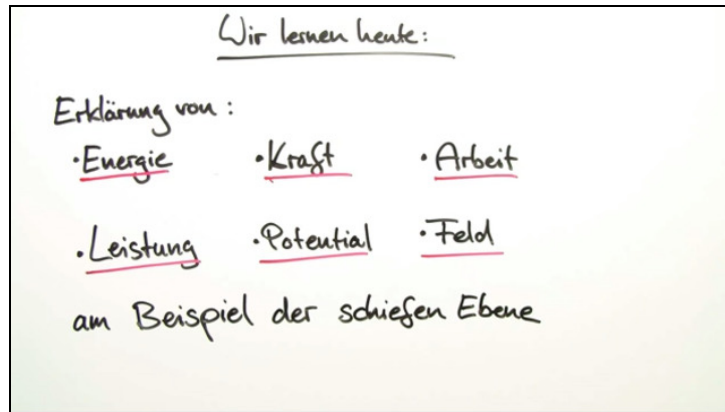 Wir lernen heute:
Erklärung von:
• Energie • Kraft • Arbeit
• Leistung • Potential • Feld
am Beispiel der schiefen Ebene